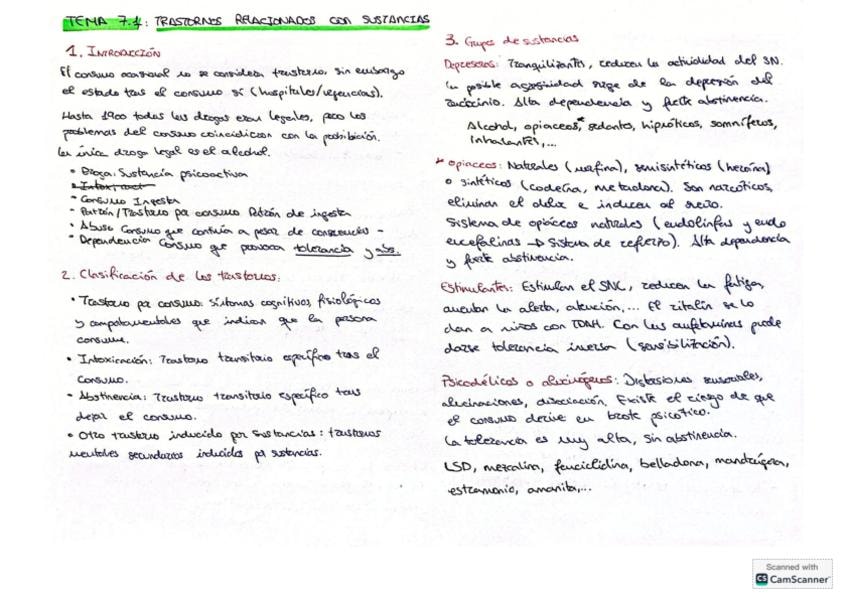 TEMA 7.1: TRASTORNOS RELACIONADOS CON SUSTANCIAS
1. INTRODUCCIÓN
El consumo ocasional no se considera trastorno, sin embargo
el estado tras el consumo sí (hospitales/urgencias).
Hasta 1900 todas las drogas eran legales, pero los
problemas del consumo coincidieron con la prohibición.
La única droga legal es el alcohol.
• Droga: Sustancia psicoactiva
• Consumo Ingesta
• Patrón/Trastorno por consumo Patrón de ingesta
• Abuso Consumo que continúa a pesar de consecuencias -
• Dependencia Consumo que provoca tolerancia y abs.
2. Clasificación de los trastornos:
• Trastorno por consumo: Síntomas cognitivos, fisiológicos
y comportamentales que indican que la persona
consume.
• Intoxicación: Trastorno transitorio específico tras el
consumo.
• Abstinencia: Trastorno transitorio específico tras
dejar el consumo.
• Otro trastorno inducido por sustancias: trastornos
mentales secundarios inducidos por sustancias.
3. Grupos de sustancias
Depresoras: Tranquilizantes, reducen la actividad del SN.
La posible agresividad surge de la depresión del
raciocinio. Alta dependencia y fuerte abstinencia.
Alcohol, opiaceos*, sedantes, hipnóticos, somníferos,
inhalantes,...
* opiaceos: Naturales (morfina), semisintéticos (heroína)
o sintéticos (codeína, metadona). Son narcóticos,
eliminan el dolor e inducen al sueño.
Sistema de opiáceos naturales (endolinfas y endo
encefalinas → Sistema de refuerzo). Alta dependencia
y fuerte abstinencia.
Estimulantes: Estimulan el SNC, reducen la fatiga,
aumentan la alerta, atención,... El ritalín se lo
dan a niños con TDAH. Con las anfetaminas puede
darse tolerancia inversa (sensibilización).
Psicodélicos o alucinógenos: Distorsiones sensoriales,
alucinaciones, disociación, Existe el riesgo de que
el consumo derive en brote psicótico.
La tolerancia es muy alta, sin abstinencia.
LSD, mezcalina, fenciclidina, belladona, mandrágora,
estramonio, amanita,...
Scanned with
CS CamScanner